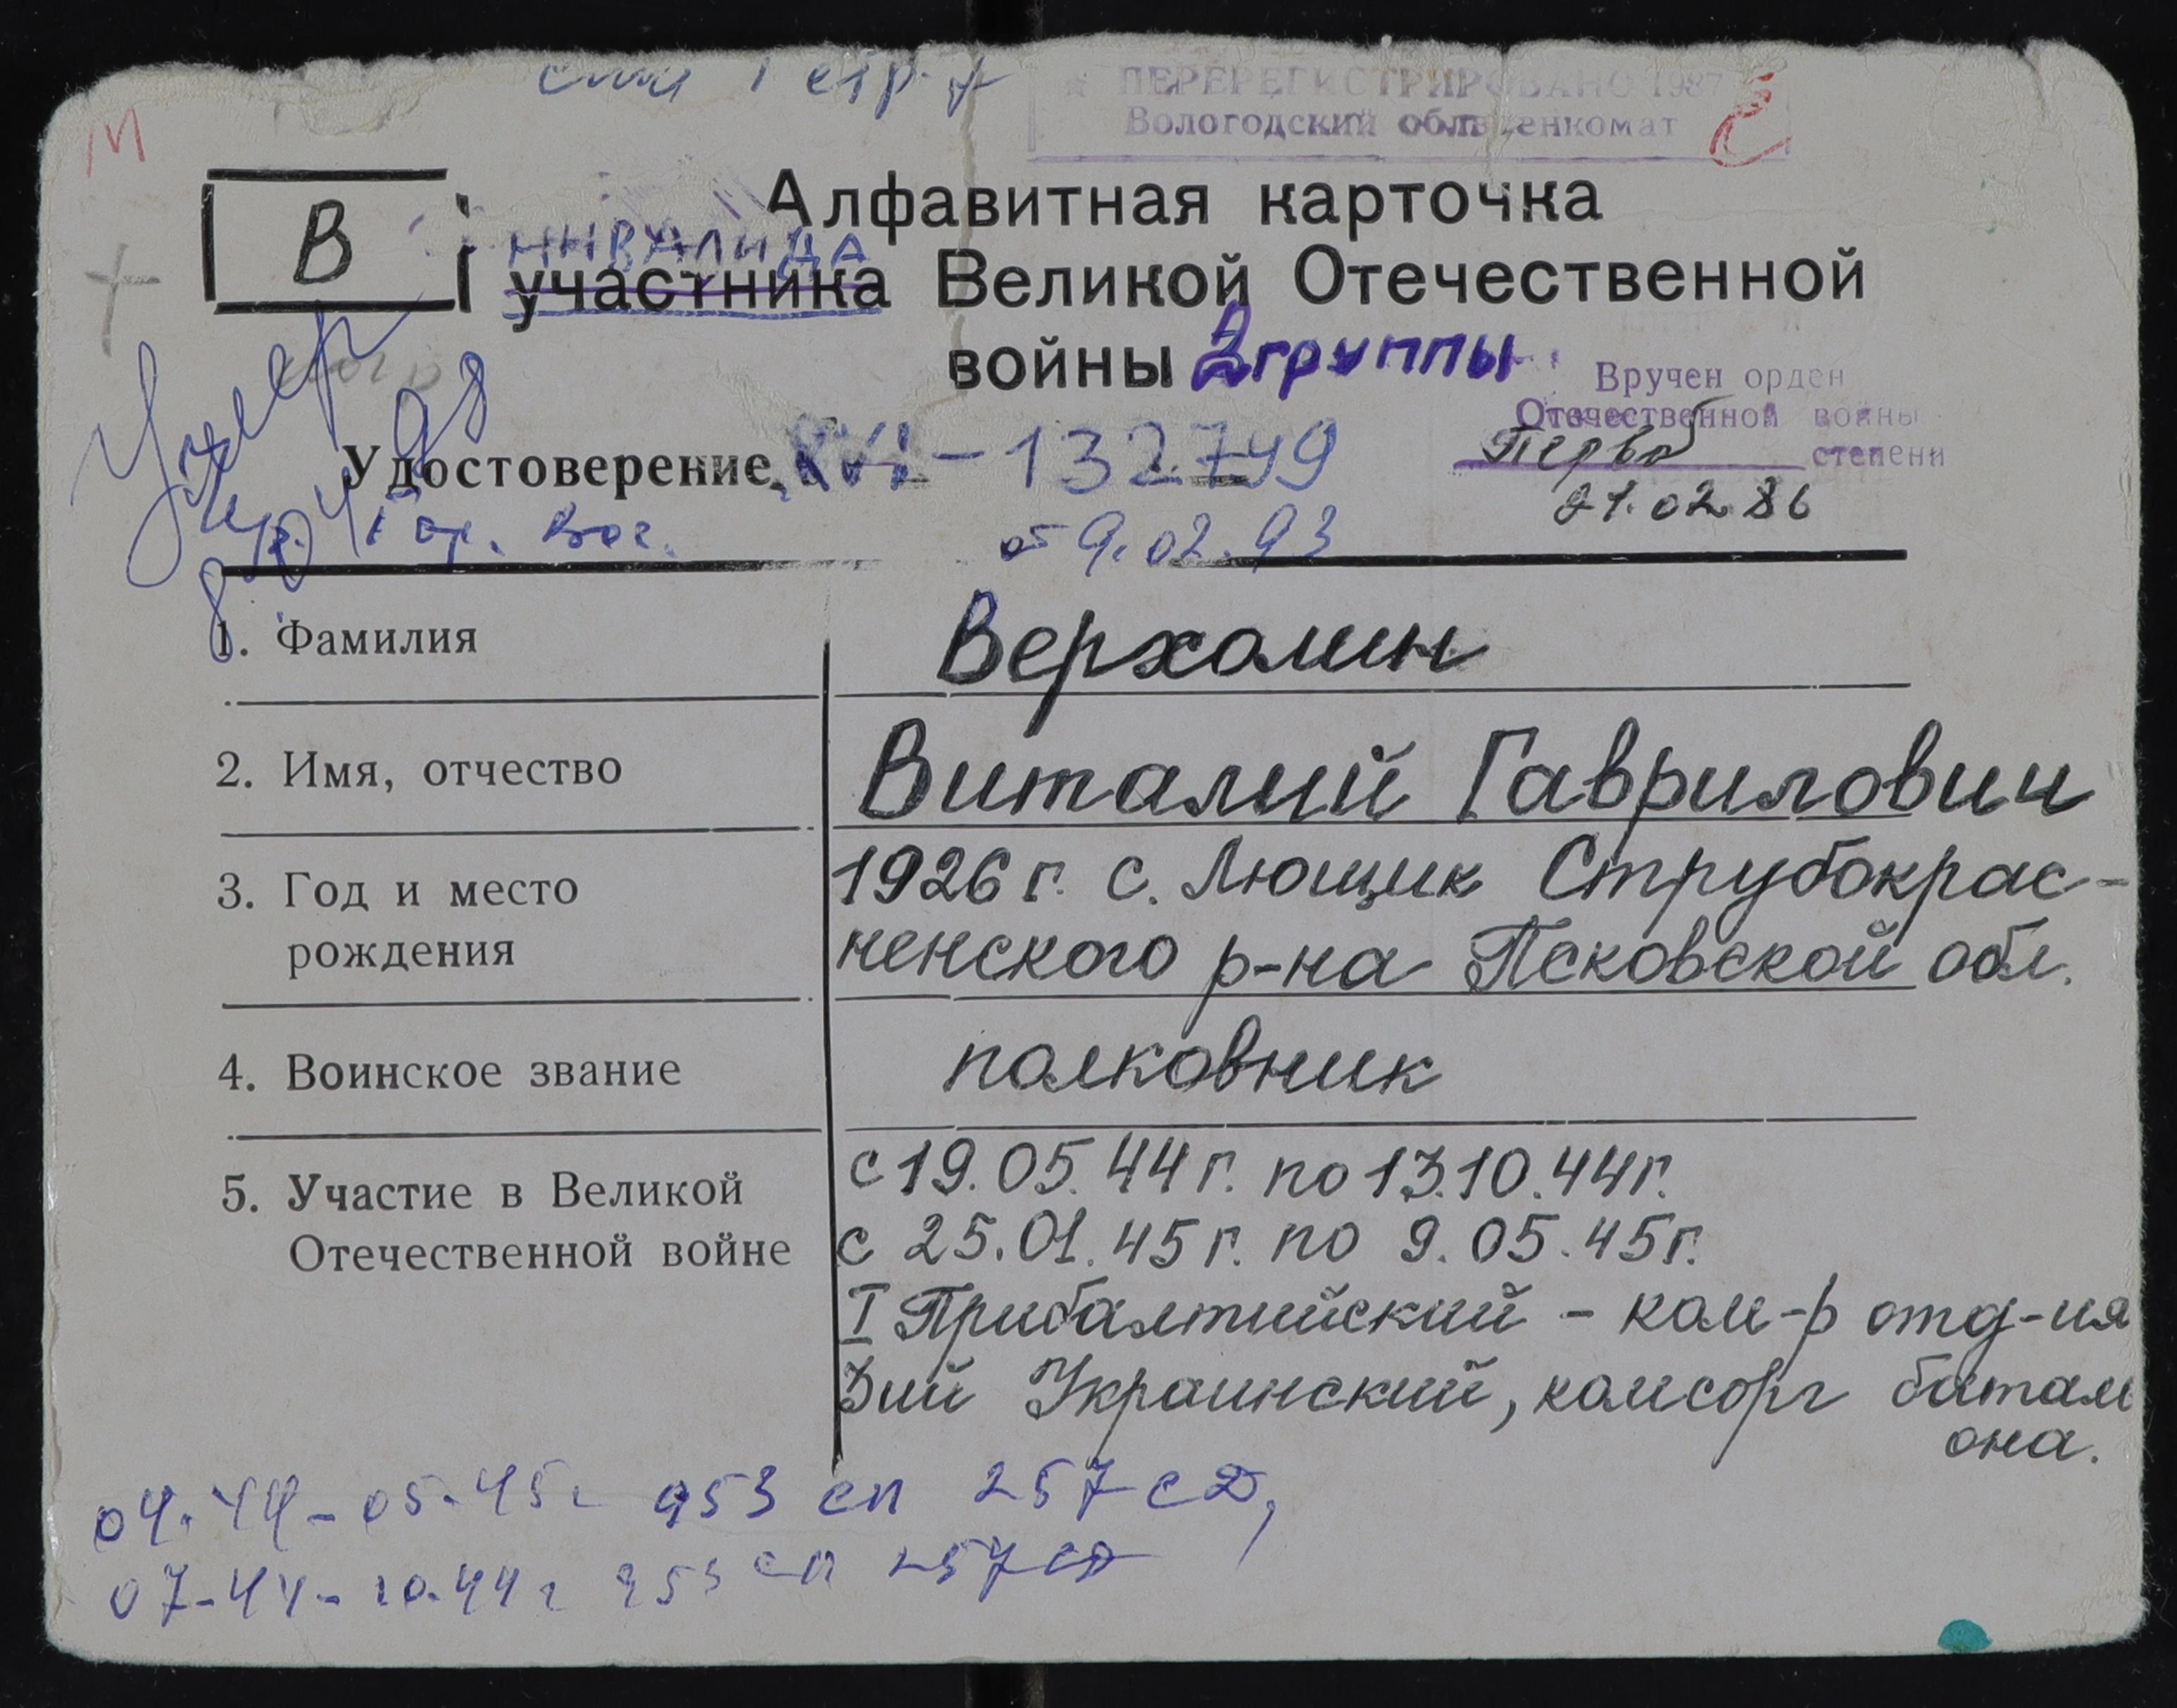 стр. 7
ПЕРЕРЕГИСТРИРОВАНО 1987
Вологодский облвоенкомат
М
В
Алфавитная карточка
инвалида
участника Великой Отечественной
войны 2 группы
Вручен орден
Отечественной войны
Первой степени
21.02.86
Умер
98
Удостоверение XVI - 132749
Гор. Вог.
от 9.02.93
1. Фамилия Верхолин
2. Имя, отчество Виталий Гаврилович
3. Год и место 1926 г. с. Лющик Струбокрас-
рождения ненского р-на Псковской обл.
4. Воинское звание полковник
5. Участие в Великой с 19.05.44 г. по 13.10.44 г.
Отечественной войне с 25.01.45 г. по 9.05.45 г.
I Прибалтийский - ком-р отд-ия
3ий Украинский, комсорг батал
она.
04.44-05.45г 953 сп 257 сд,
07-44-10.44г 953 сп 257 сд